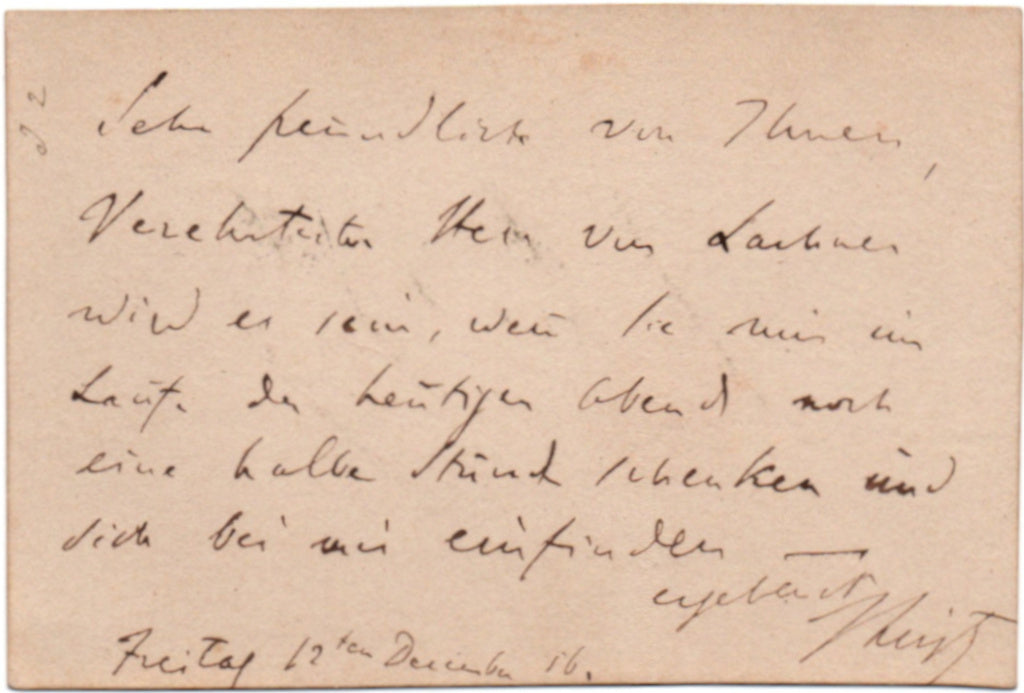 Sehr freundlich von Ihnen,
Verehrtester Herr von Lachner
wird es sein, wenn Sie mir im
Laufe des heutigen Abend noch
eine halbe Stunde schenken und
sich bei mir einfinden —
ergebenst
FLiszt
Freitag 12ten December 56.